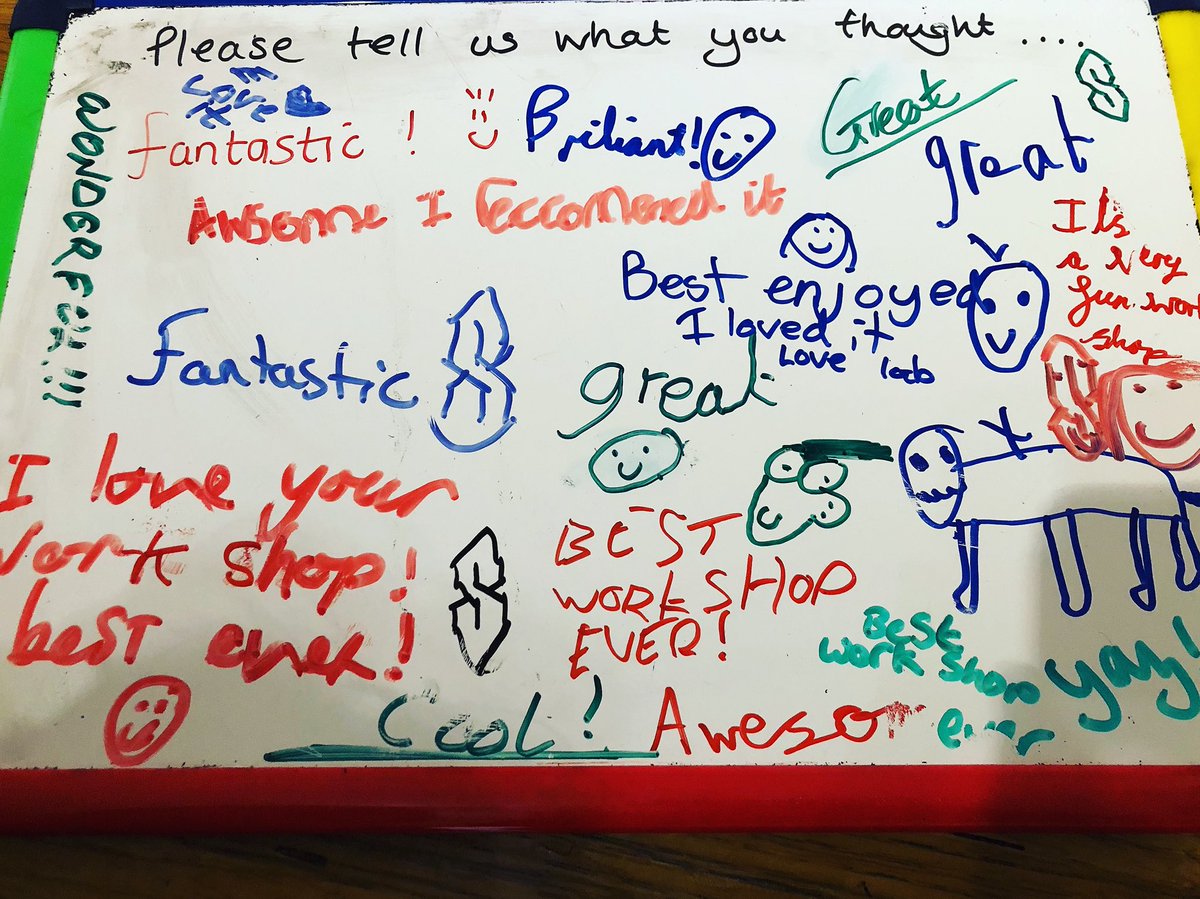 Please tell us what you thought ....
WONDERFUL!!!
fantastic !
Briliant!
Great
great
Awsome I reccomened it
Its
a very
fun work
shop
Best enjoyed
I loved it
Love
Fantastic
great
I love your
work shop!
best ever!
BEST
WORKSHOP
EVER!
Best
work shop
ever
yay!
Cool!
Aweso